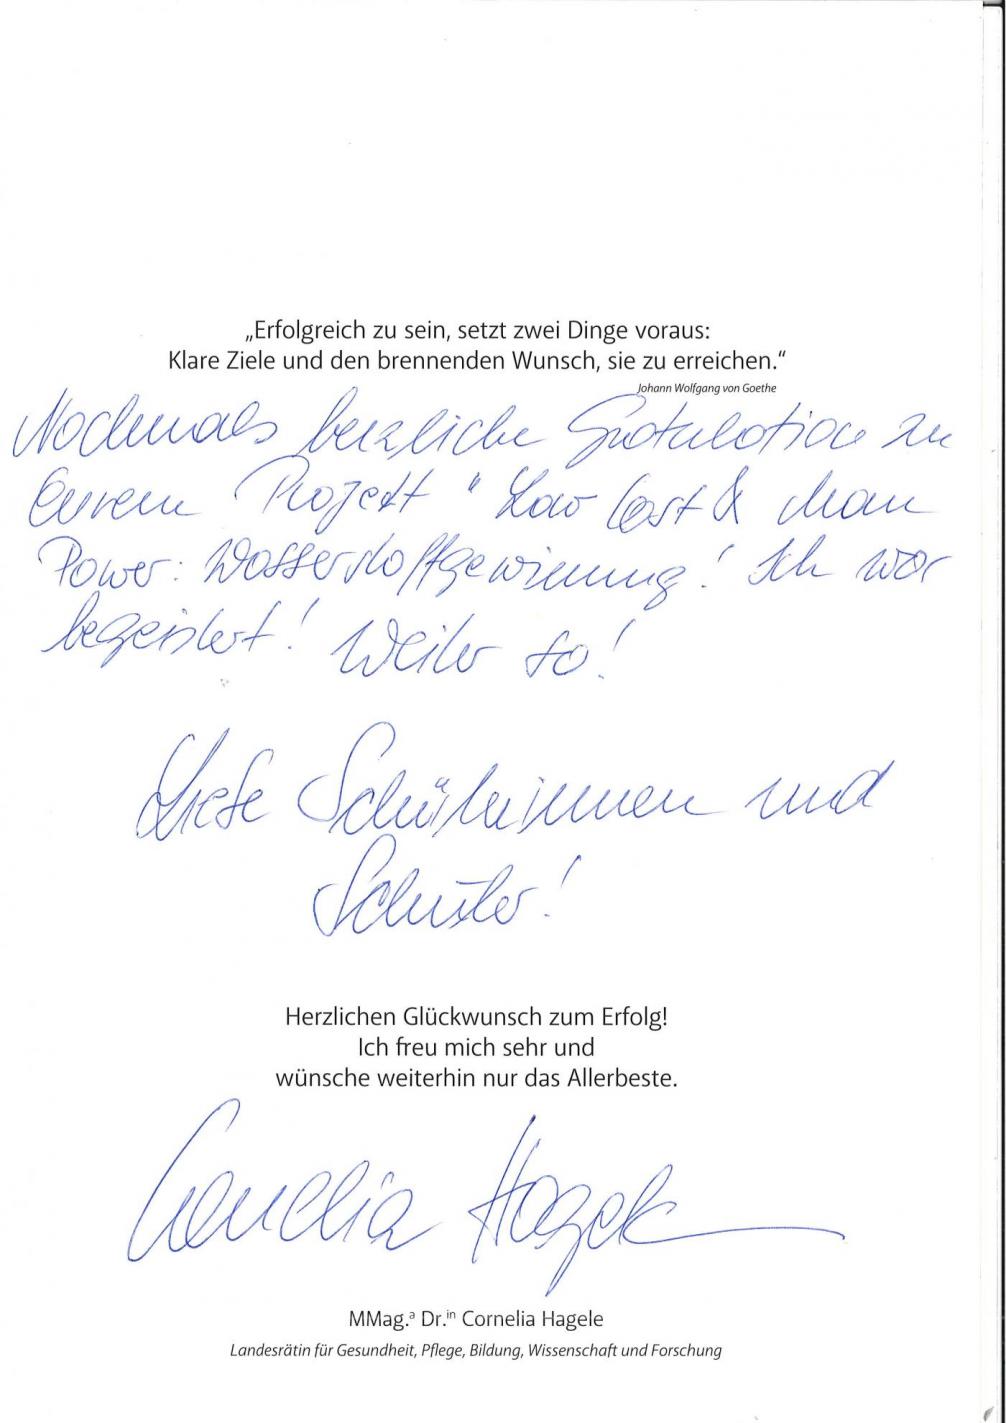 „Erfolgreich zu sein, setzt zwei Dinge voraus:
Klare Ziele und den brennenden Wunsch, sie zu erreichen.“
Johann Wolfgang von Goethe
Nochmals herzliche Gratulation zu
Eurem Projekt "Low Cost & Man
Power: Wasserstoffgewinnung! Ich war
begeistert! Weiter so!
Liebe Schülerinnen und
Schüler!
Herzlichen Glückwunsch zum Erfolg!
Ich freu mich sehr und
wünsche weiterhin nur das Allerbeste.
Cornelia Hagele
MMag.ᵃ Dr.ⁱⁿ Cornelia Hagele
Landesrätin für Gesundheit, Pflege, Bildung, Wissenschaft und Forschung